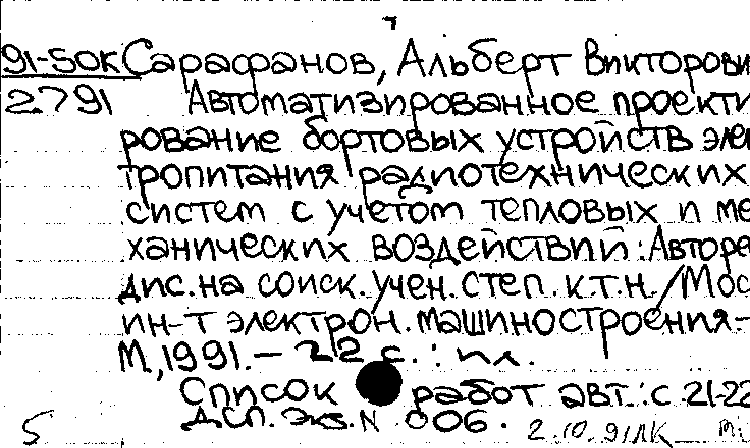 91-50к Сарафанов, Альберт Викторови
2791 Автоматизированное проекти
рование бортовых устройств элек
тропитания радиотехнических
систем с учетом тепловых и ме
ханических воздействий: Авторе
дис. на соиск. учен. степ. к.т.н. / Мос
ин-т электрон. машиностроения.-
М., 1991. - 22 с.: ил.
Список работ авт.: с. 21-22
ДСП. Экз. N 006. 2.10.91 ЛК т:
5